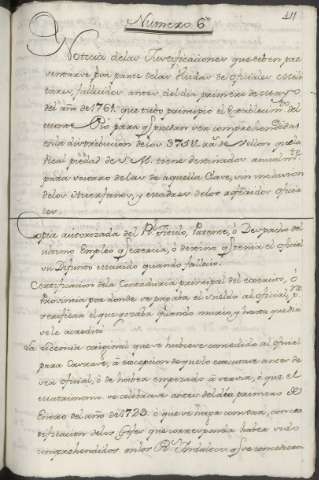 Numero 6º
Noticia delas Justificaciones que deben presentarse por parte delas Viudas de oficiales militares, fallecidos antes del dia primero de
del año de 1761. que tubo principio el Establecimto del
monte Pio para q puedan ser comprehendidas
en la distribucion delos 375 U. rs. de Vellon que la
Real piedad de S. M. tiene destinados anualmte
para socorro delas de aquella Clase, con inclusion
delos Huerfanos, y madres delos referidos oficiales.
Copia autorizada del Rl. Titulo, Patente, ó Despacho del
ultimo Empleo q exercia, ó destino q tenia el oficial
su Difunto marido quando falleció.
Certificacion dela Contaduria principal del exercito, ó
Provincia por donde se pagaba el sueldo al oficial, pa
verificar el que gozaba quando murio, y hasta que dia
se le acreditó.
La licencia original que se hubiere concedido al oficial
para Casarse, á excepcion de que lo executase antes de
ser oficial, ó de haber empezado á servir, ó que el
matrimonio se celebrase antes del dia primero de
Enero del año de 1720. ó que se haga constar, con certificacion delos Gefes que corresponda haber sido
comprehendidos en los Rs. Indultos q se concedieron